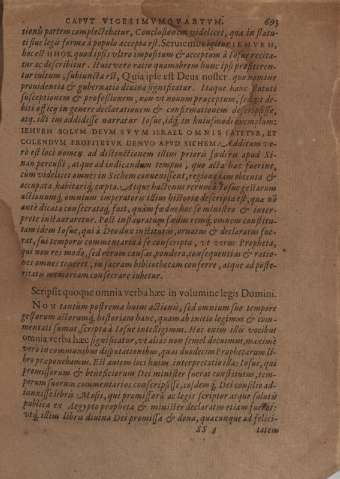 CAPVT VIGESIMVMQVARTVM. 693
tionis partem complectebatur, Conclusionem videlicet, qua in statu-
tis sue legis forma à populo accepta est. Seruiemus igitur IEHVEH,
hoc est HVNC quod ipsis vltro impositum & acceptum à Iosue recita-
tur ac describitur. Huic vero ratio quamobrem hunc ipsi profiteren-
tur cultum, subiuncta est, Quia ipse est Deus noster. quo nomine
prouidentia & gubernatio diuina significatur. Itaque hanc statuti
susceptionem & professionem, non vt nouum præceptum, sed vt de-
biti officij in genere declarationem & confirmationem descripsisse,
atq. ista tam addidisse narratur Iosue,
IEHVEH SOLVM DEVM SVVM ISRAEL OMNIS FATETVR, ET
COLENDVM PROFITETVR DENVO APVD SICHEM. Additum ve-
rò est loci nomen, ad distinctionem istius prioris fœderis apud Si-
nan percussi, atque ad indicandum tempus, quo acta hæc fuerint,
cum videlicet omnes in Sichem conuenissent, regione iam obtenta &
occupata, habitariq. cœpta. Atque hactenus rerum à Iosue gestarum
vltimum, & omnium imperatoris illius historia descripta est, quæ nō
ante dicata consecrataq. fuit, quàm fœdus hoc se ministro & inter-
prete instauraretur. Post instauratum fœdus
tam idem Iosue, qui à Deo dux institutus, ornatus & declaratus fue-
rat, sui temporis commentaria à se conscripta, vt verus Propheta,
qui non res modò, sed rerum causas, pondera, consequentias & ratio-
nes omneis teneret, in sacram bibliothecam conferre, atque ad poste-
ritatis memoriam consecrare iubetur.
Scripsit quoque omnia verba hæc in volumine legis Domini.
Non tantùm postrema huius actionis, sed omnium suo tempore
gestarum actorumq. historiam hanc, quam ab initio legimus & com-
mentati sumus scriptā à Iosue intelligimus. Hoc enim istis vocibus
omnia verba hæc significatur, vt alias non semel docuimus, maximè
verò in communibus disputationibus, quas duodecim Prophetarum li-
bro præposuimus. Est autem loci huius interpretatio ista: Iosue, qui
promissorum & beneficiorum Dei minister fuerat constitutus, tem-
porum suorum commentarios conscripsisse, eosdemq. Dei consilio ad-
iunxisse libris Mosis, qui promissorū ac legis scriptor atque salutis
publicæ ex Aegypto propheta & minister declaratus etiam fuerat:
vtq. istius libris diuina Dei promissa & dona, quacunque ad felici-
SS 4 tatem